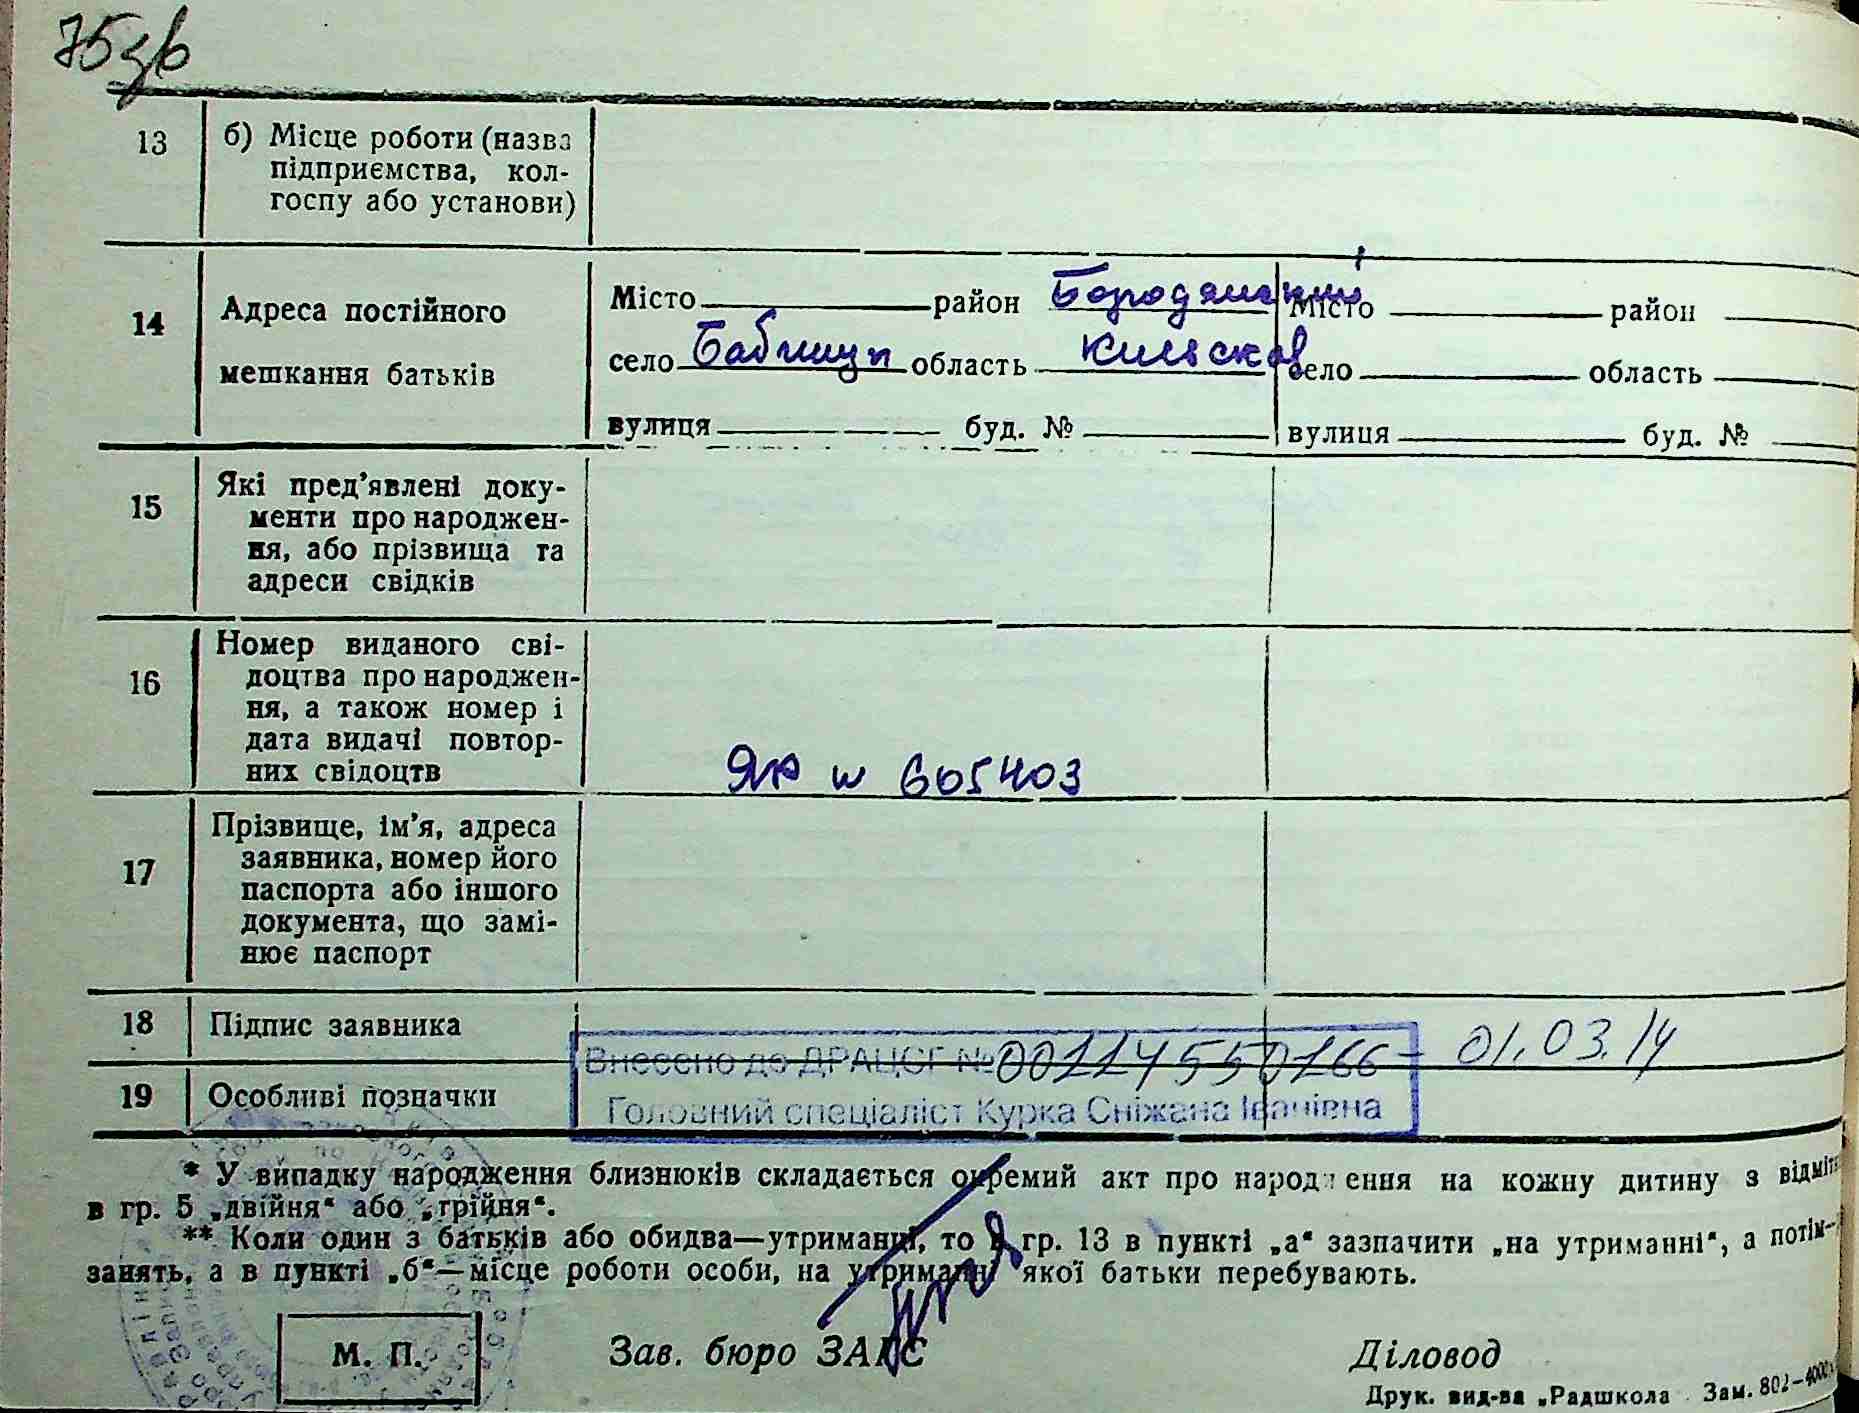 75зв
13 б) Місце роботи (назва
підприємства, кол-
госпу або установи)
14 Адреса постійного
мешкання батьків
Місто район Бородянський Місто район
село Бабинці область Київська село область
вулиця буд. № вулиця буд. №
15 Які пред’явлені доку-
менти про народжен-
ня, або прізвища та
адреси свідків
16 Номер виданого сві-
доцтва про народжен-
ня, а також номер і
дата видачі повтор-
них свідоцтв
ЯР № 605403
17 Прізвище, ім’я, адреса
заявника, номер його
паспорта або іншого
документа, що замі-
нює паспорт
18 Підпис заявника
Внесено до ДРАЦСГ № 00114550166 - 01.03.14
19 Особливі позначки
Головний спеціаліст Курка Сніжана Іванівна
* У випадку народження близнюків складається окремий акт про народження на кожну дитину з відміт
в гр. 5 „двійня“ або „трійня“.
** Коли один з батьків або обидва—утриманці, то в гр. 13 в пункті „а“ зазпачити „на утриманні“, а потім—
занять, а в пункті „б“—місце роботи особи, на утриманні якої батьки перебувають.
М. П. Зав. бюро ЗАГС Діловод
Друк. вид-ва „Радшкола Зам. 802—4000